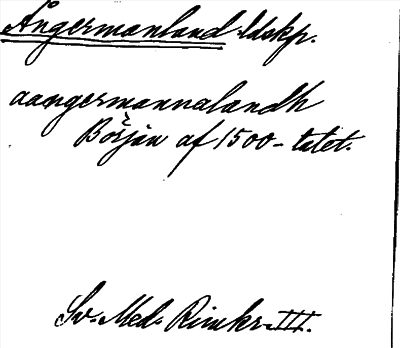 Ångermanland ldskp.
aangermannalandh
Börjån af 1500-talet.
Sv. Med. Rimkr. III.